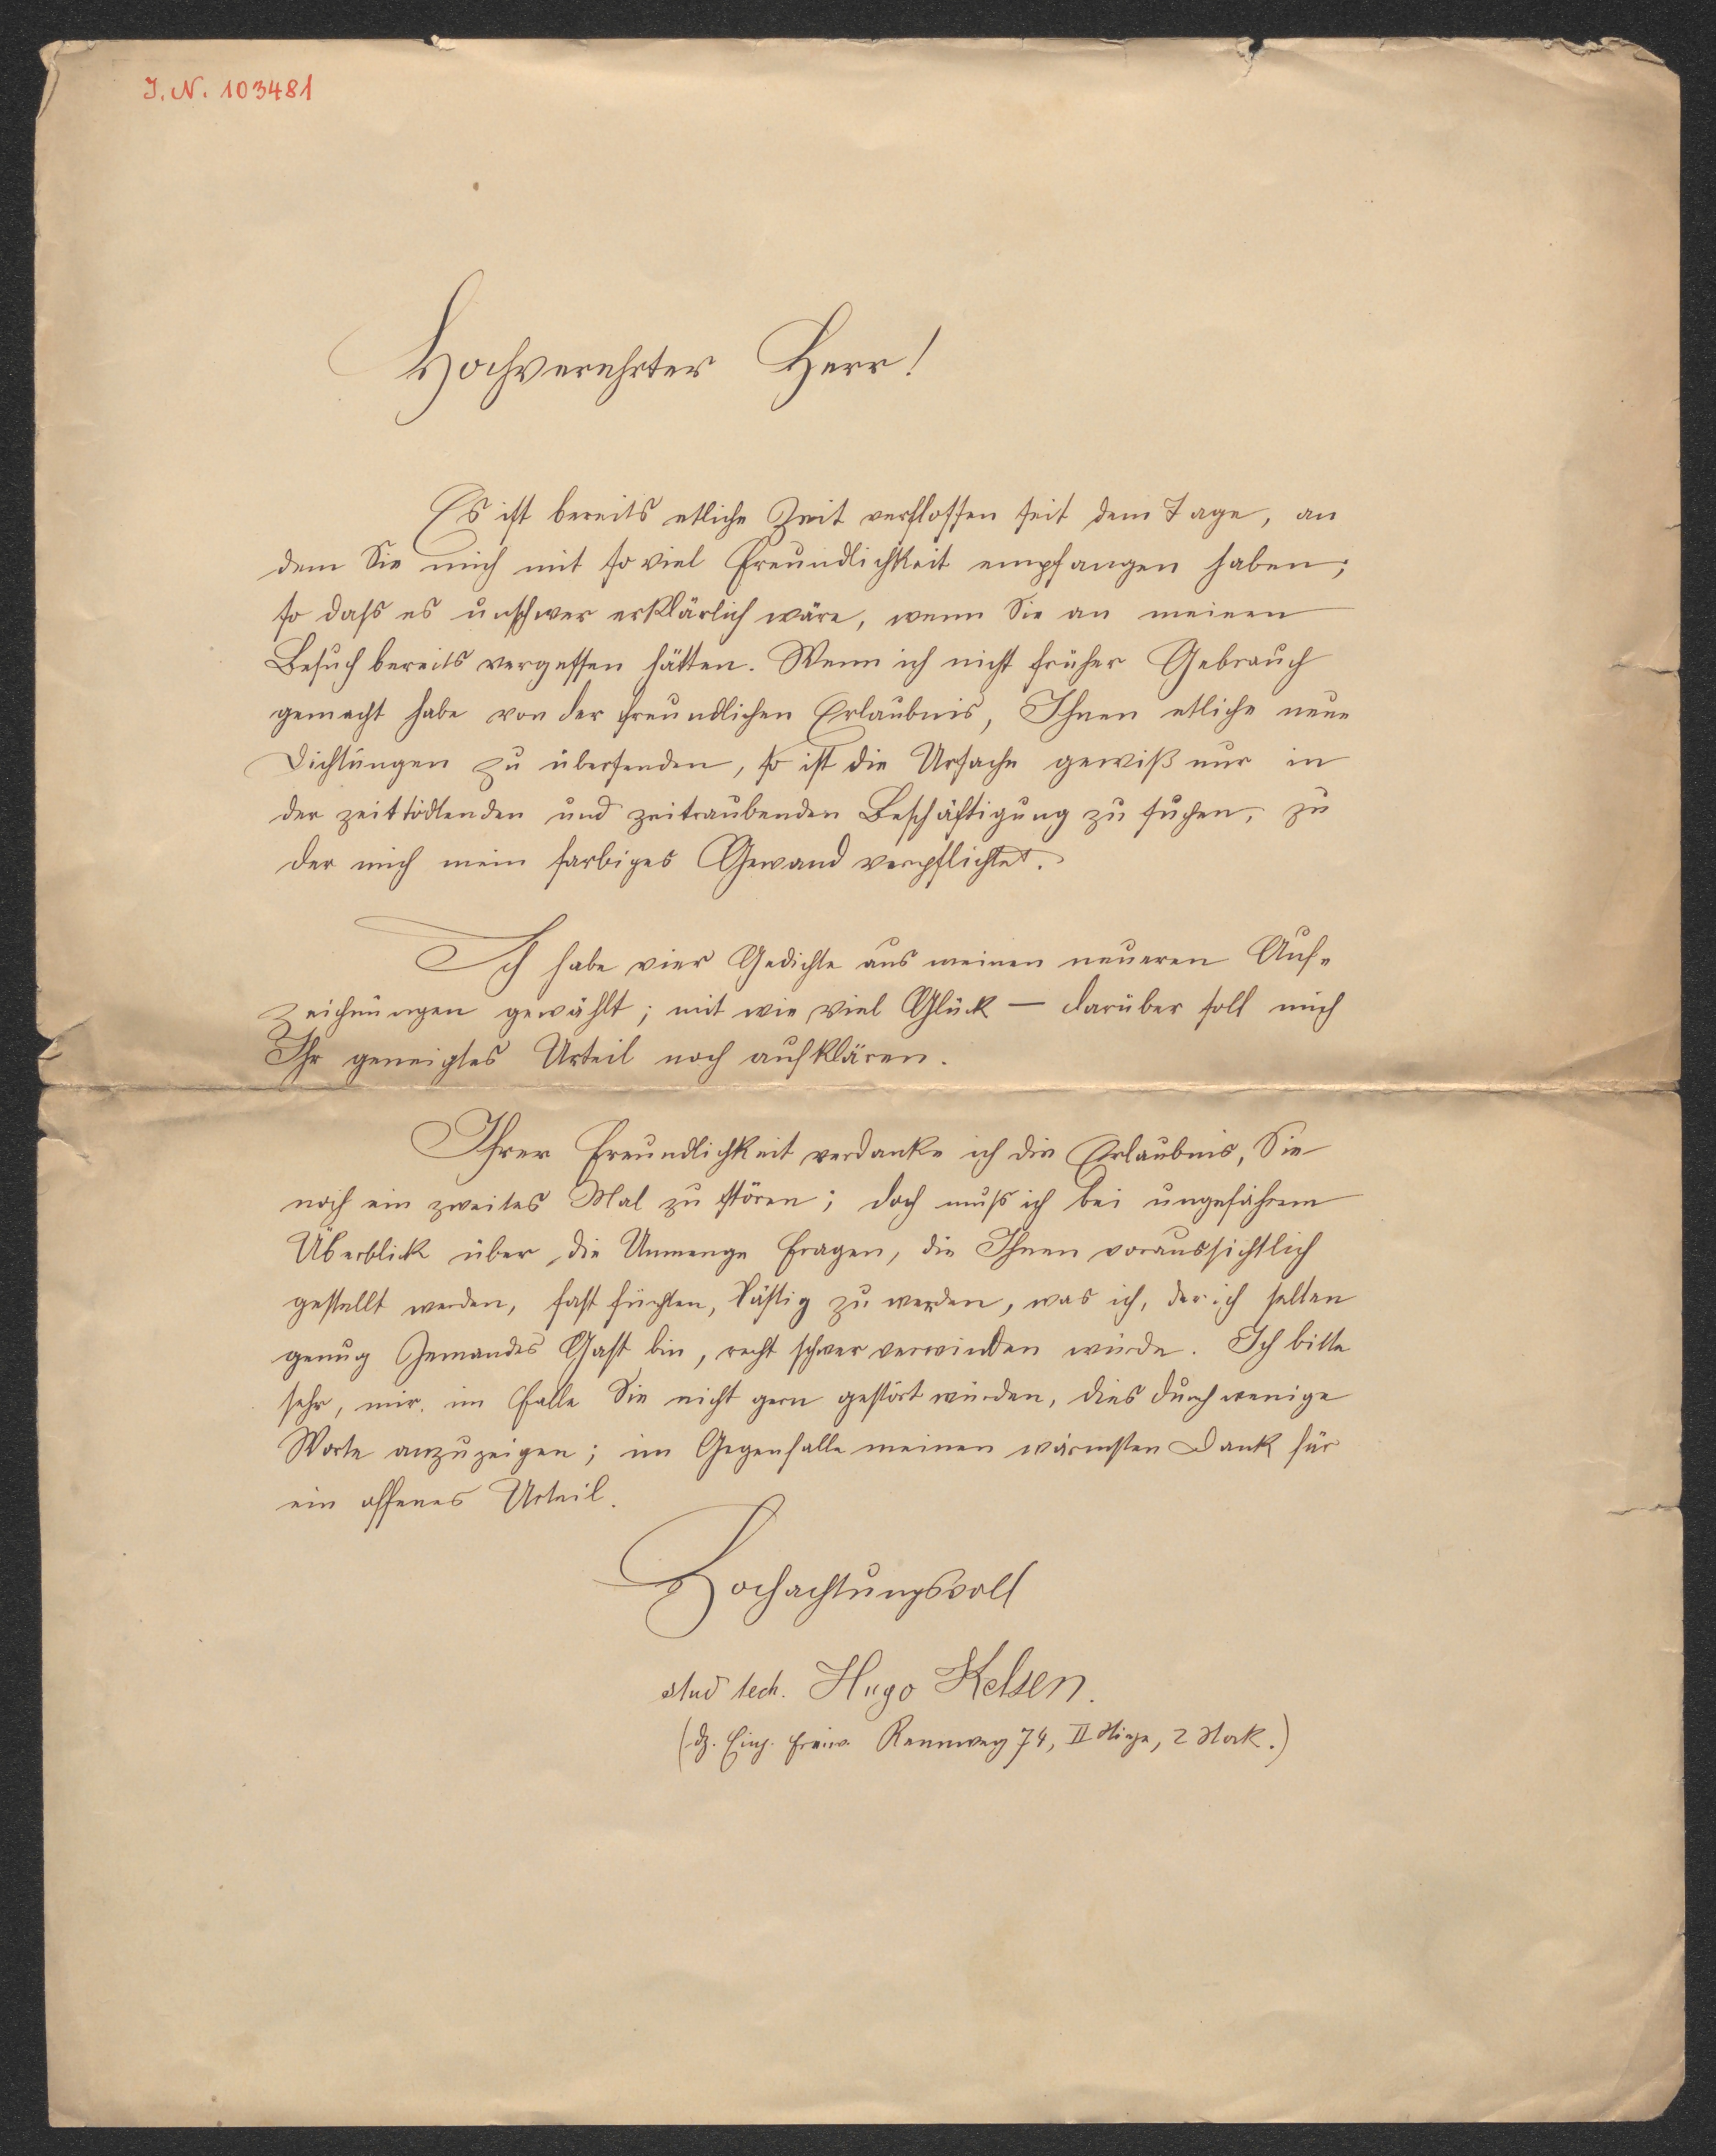 I. N. 103481
Hochverehrter Herr!
Es ist bereits etliche Zeit verflossen seit dem Tage, an
dem Sie mich mit so viel Freundlichkeit empfangen haben;
so dass es unschwer erklärlich wäre, wenn Sie an meinen
Besuch bereits vergessen hätten. Wenn ich nicht früher Gebrauch
gemacht habe von der freundlichen Erlaubnis, Ihnen etliche neue
Dichtungen zu übersenden, so ist die Ursache gewiß nur in
der zeittödtenden und zeitraubenden Beschäftigung zu suchen, zu
der mich mein farbiges Gewand verpflichtet.
Ich habe vier Gedichte aus meinen neueren Auf-
zeichnungen gewählt; mit wie viel Glück — darüber soll mich
Ihr geneigtes Urteil noch aufklären.
Ihrer Freundlichkeit verdanke ich die Erlaubnis, Sie
noch ein zweites Mal zu stören; doch muss ich bei ungefährem
Überblick über die Unmenge Fragen, die Ihnen voraussichtlich
gestellt werden, fast fürchten, lästig zu werden, was ich, der ich selten
genug Jemandes Gast bin, recht schwer verwinden würde. Ich bitte
sehr, mir, im Falle Sie nicht gern gestört würden, dies durch wenige
Worte anzuzeigen; im Gegenfalle meinen wärmsten Dank für
ein offenes Urteil.
Hochachtungsvoll
stud tech. Hugo Kelsen.
(dz. Einj. Freiw. Rennweg 74, II Stiege, 2 Stock.)